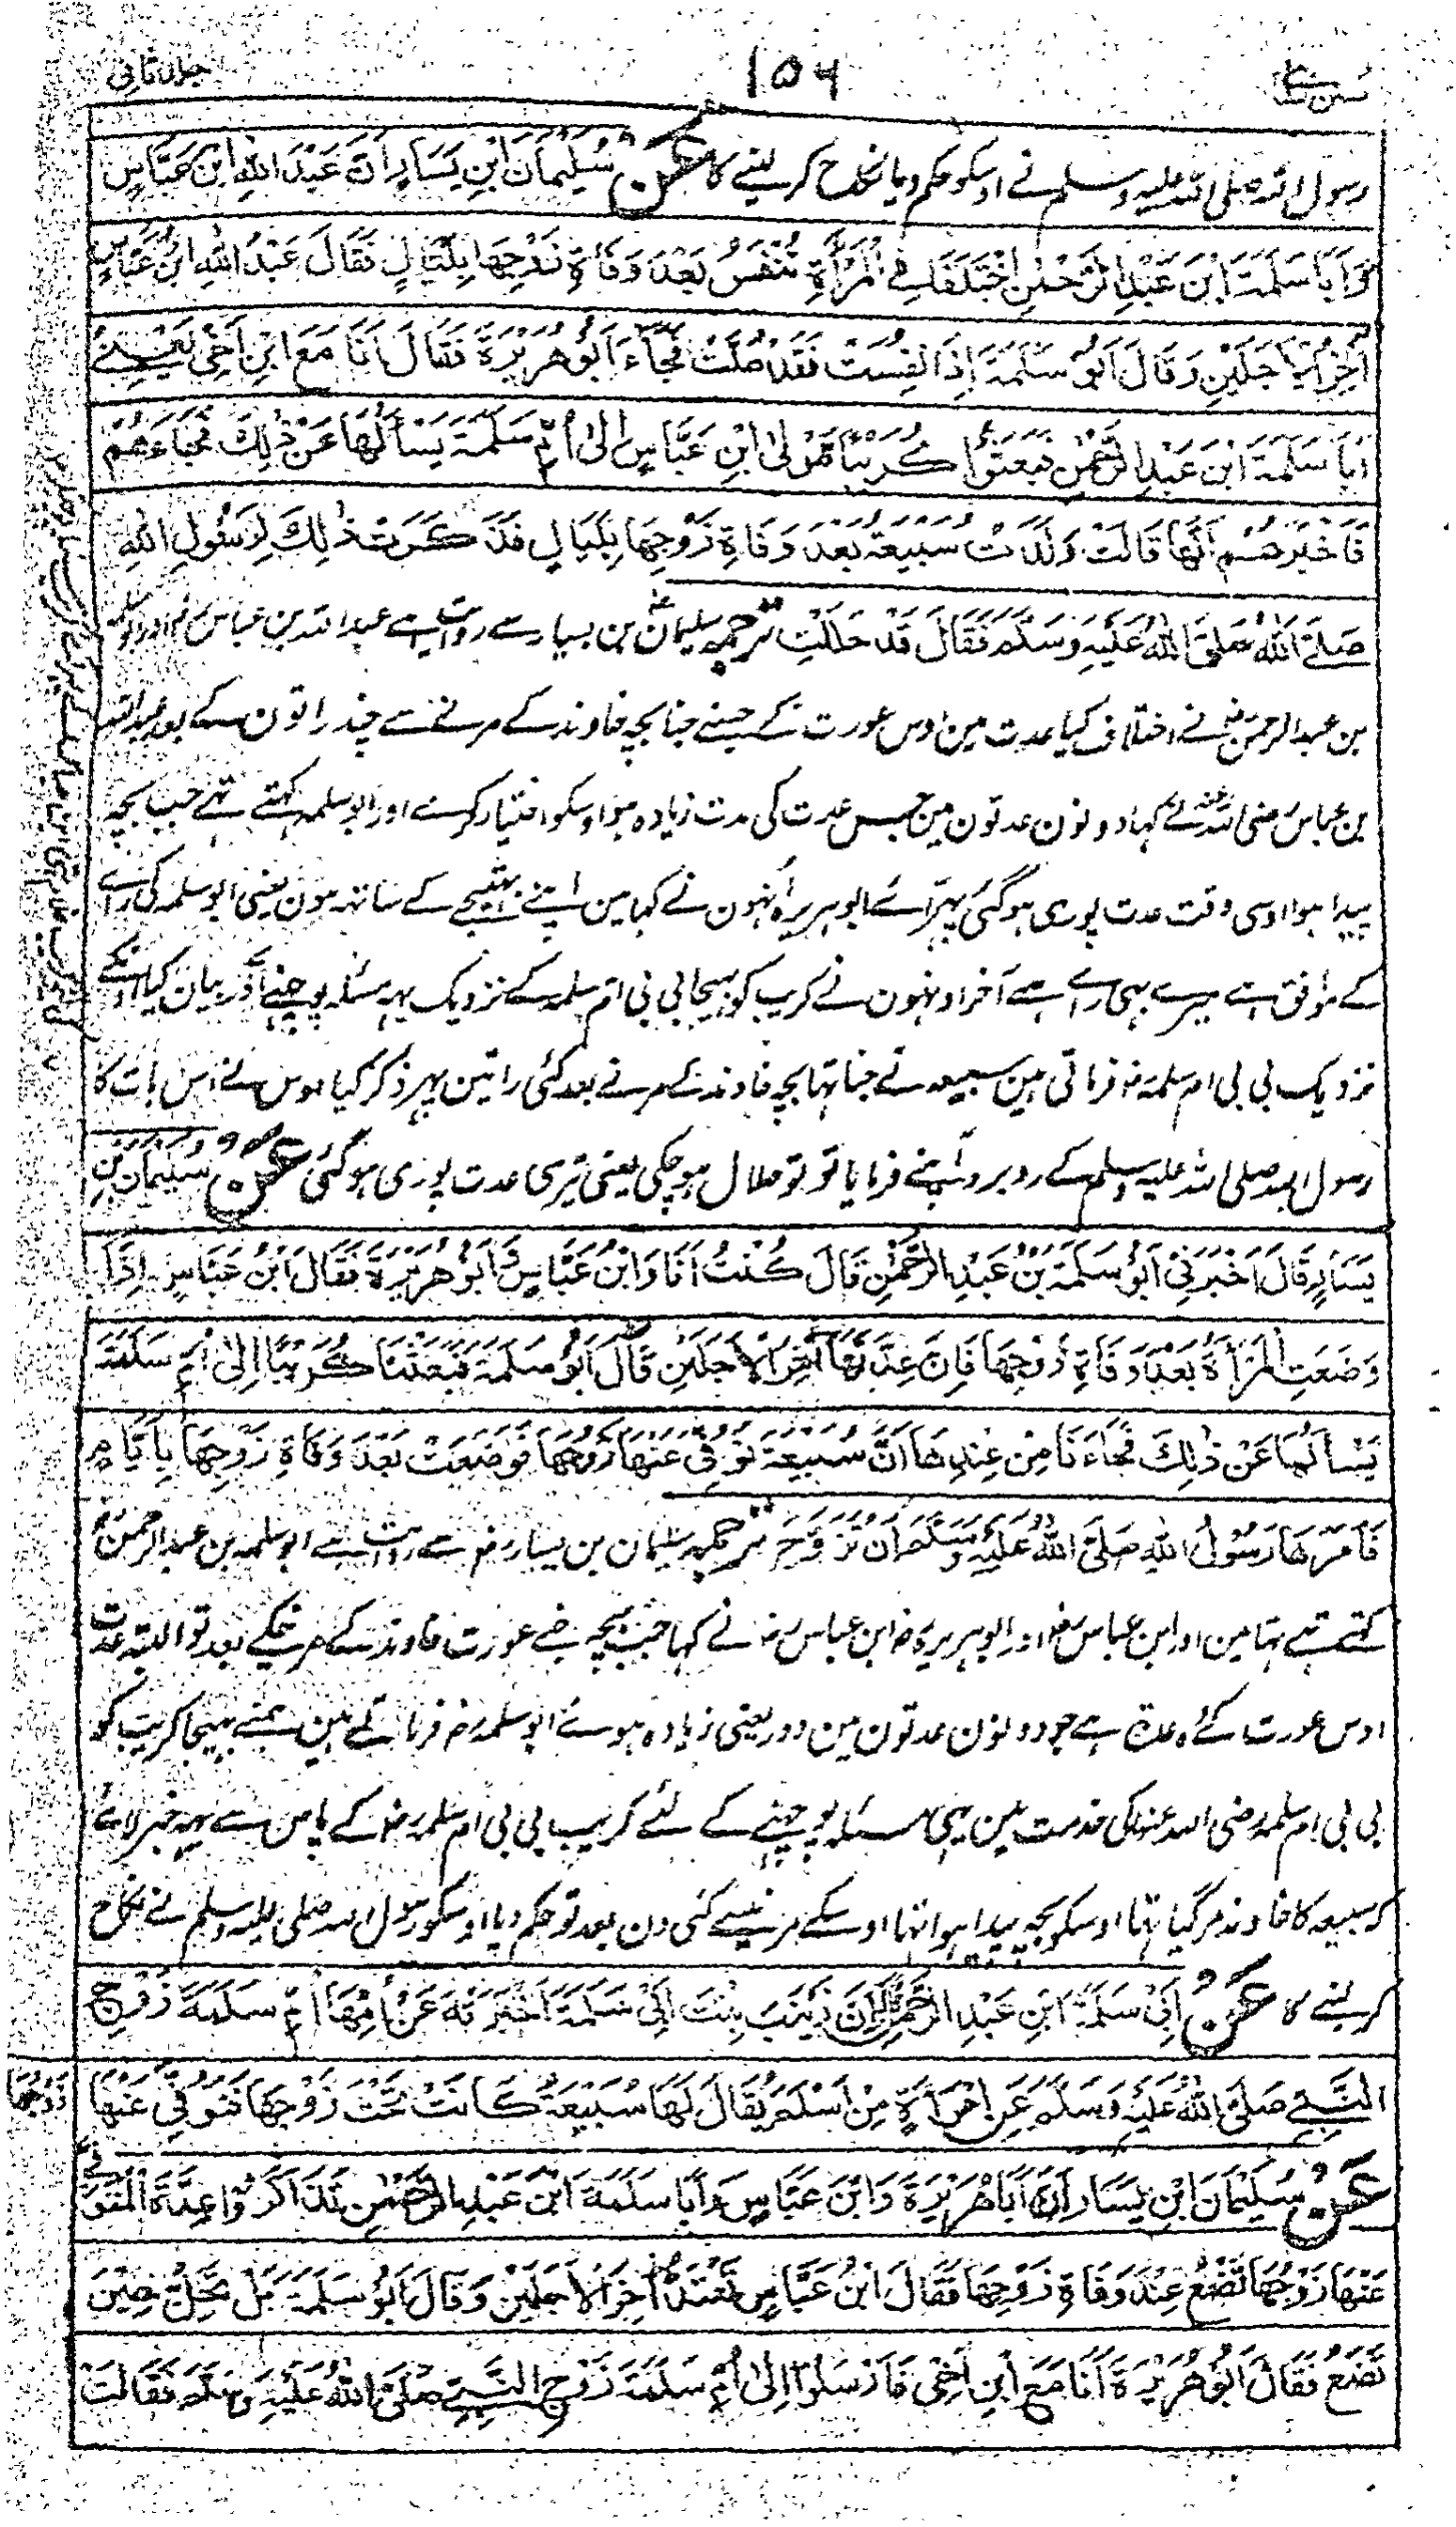 جلد ثانی
۱۵۶
رسول اللہ صلی اللہ علیہ وسلم نے اوسکو حکم دیا نکاح کر لینے کا عَنْ سُلَيْمَانَ ابْنِ يَسَارٍ اَنَّ عَبْدَ اللهِ ابْنَ عَبَّاسٍ
وَاَبَا سَلَمَةَ ابْنَ عَبْدِ الرَّحْمٰنِ اخْتَلَفَا فِي الْمَرْأَةِ تُنْفَسُ بَعْدَ وَفَاةِ زَوْجِهَا بِلَيَالٍ فَقَالَ عَبْدُ اللهِ ابْنُ عَبَّاسٍ
اٰخِرُ الْاَجَلَيْنِ وَقَالَ اَبُوْ سَلَمَةَ اِذَا نُفِسَتْ فَقَدْ حَلَّتْ فَجَآءَ اَبُوْ هُرَيْرَةَ فَقَالَ اَنَا مَعَ ابْنِ اَخِيْ يَعْنِيْ
اَبَا سَلَمَةَ ابْنَ عَبْدِ الرَّحْمٰنِ فَبَعَثُوْا كُرَيْبًا مَّوْلَى ابْنِ عَبَّاسٍ اِلٰى اُمِّ سَلَمَةَ يَسْأَلُهَا عَنْ ذٰلِكَ فَجَاءَهُمْ
فَاَخْبَرَهُمْ اَنَّهَا قَالَتْ وَلَدَتْ سُبَيْعَةُ بَعْدَ وَفَاةِ زَوْجِهَا بِلَيَالٍ فَذَكَرَتْ ذٰلِكَ لِرَسُوْلِ اللهِ
صَلَّى اللهُ صَلَّى اللهُ عَلَيْهِ وَسَلَّمَ فَقَالَ قَدْ حَلَلْتِ ترجمہ سلیمان بن یسار سے روایت ہے عبداللہ بن عباس اور ابو سلمہ
بن عبدالرحمن نے اختلاف کیا عدت مین اوس عورت کے جسنے جنا بچہ خاوند کے مرنے سے چند راتون کے بعد عبداللہ
بن عباس رضی اللہ عنہ نے کہا دونون عدتون مین جس عدت کی مدت زیادہ ہو اوسکو اختیار کرے اور ابو سلمہ کہتے تہے جب بچہ
پیدا ہوا اوسی وقت عدت پوری ہو گئی پہر آئے ابو ہریرہ اُنہون نے کہا مین اپنے بہتیجے کے ساتھ ہون یعنی ابو سلمہ کی رائے
کے موافق ہے میرے بہی رائے ہے آخر اونہون نے کریب کو بہیجا بی بی ام سلمہ کے نزدیک یہہ مسئلہ پوچہنے آکر بیان کیا اونکے
نزدیک بی بی ام سلمہ فرماتی ہین سبیعہ نے جنا تہا بچہ خاوند کے مرنے بعد کئی راتین پہر ذکر کیا اوس نے اس بات کا
رسول اللہ صلی اللہ علیہ وسلم کے روبرو آپنے فرمایا تو تو حلال ہو چکی یعنی تیری عدت پوری ہو گئی عَنْ سُلَيْمَانَ بْنِ
يَسَارٍ قَالَ اَخْبَرَنِيْ اَبُوْ سَلَمَةَ بْنُ عَبْدِ الرَّحْمٰنِ قَالَ كُنْتُ اَنَا وَابْنُ عَبَّاسٍ وَاَبُوْ هُرَيْرَةَ فَقَالَ ابْنُ عَبَّاسٍ اِذَا
وَضَعَتِ الْمَرْأَةُ بَعْدَ وَفَاةِ زَوْجِهَا فَاِنَّ عِدَّتَهَا اٰخِرُ الْاَجَلَيْنِ قَالَ اَبُوْ سَلَمَةَ فَبَعَثْنَا كُرَيْبًا اِلٰى اُمِّ سَلَمَةَ
يَسْأَلُهَا عَنْ ذٰلِكَ فَجَاءَنَا مِنْ عِنْدِهَا اَنَّ سُبَيْعَةَ تُوُفِّيَ عَنْهَا زَوْجُهَا فَوَضَعَتْ بَعْدَ وَفَاةِ زَوْجِهَا بِاَيَّامٍ
فَاَمَرَهَا رَسُوْلُ اللهِ صَلَّى اللهُ عَلَيْهِ وَسَلَّمَ اَنْ تَزَوَّجَ ترجمہ سلیمان بن یسار سے روایت ہے ابو سلمہ بن عبدالرحمن
کہتے تہے تہا مین اور ابن عباس اور ابو ہریرہ ابن عباس نے کہا جب بچہ جنے عورت خاوند کے مرنیکے بعد تو البتہ عدت
اوس عورت کے وہ عدت ہے جو دونون عدتون مین دور یعنی زیادہ ہوئے ابو سلمہ فرماتے ہین ہمنے بہیجا کریب کو
بی بی ام سلمہ رضی اللہ عنہا کی خدمت مین یہی مسئلہ پوچہنے کے لئے کریب بی بی ام سلمہ کے پاس سے یہہ خبر لائے
کہ سبیعہ کا خاوند مر گیا تہا اوسکو بچہ پیدا ہوا تہا اوسکے مرنیسے کئی دن بعد تو حکم دیا اوسکو رسول اللہ صلی علیہ وسلم نے نکاح
کر لینے کا عَنْ اَبِيْ سَلَمَةَ ابْنِ عَبْدِ الرَّحْمٰنِ اَنَّ زَيْنَبَ بِنْتَ اَبِيْ سَلَمَةَ اَخْبَرَتْهُ عَنْ اُمِّهَا اُمِّ سَلَمَةَ زَوْجِ
النَّبِيِّ صَلَّى اللهُ عَلَيْهِ وَسَلَّمَ عَنِ امْرَأَةٍ مِنْ اَسْلَمَ يُقَالُ لَهَا سُبَيْعَةُ كَانَتْ تَحْتَ زَوْجِهَا فَتُوُفِّيَ عَنْهَا زَوْجُهَا
عَنْ سُلَيْمَانَ ابْنِ يَسَارٍ اَنَّ اَبَا هُرَيْرَةَ وَابْنَ عَبَّاسٍ وَاَبَا سَلَمَةَ ابْنَ عَبْدِ الرَّحْمٰنِ تَذَاكَرُوْا عِدَّةَ الْمُتَوَفّٰى
عَنْهَا زَوْجُهَا تَضَعُ عِنْدَ وَفَاةِ زَوْجِهَا فَقَالَ ابْنُ عَبَّاسٍ تَعْتَدُّ اٰخِرَ الْاَجَلَيْنِ وَقَالَ اَبُوْ سَلَمَةَ بَلْ تَحِلُّ حِيْنَ
تَضَعُ فَقَالَ اَبُوْ هُرَيْرَةَ اَنَا مَعَ ابْنِ اَخِيْ فَاَرْسَلُوْا اِلٰى اُمِّ سَلَمَةَ زَوْجِ النَّبِيِّ صَلَّى اللهُ عَلَيْهِ وَسَلَّمَ فَقَالَتْ